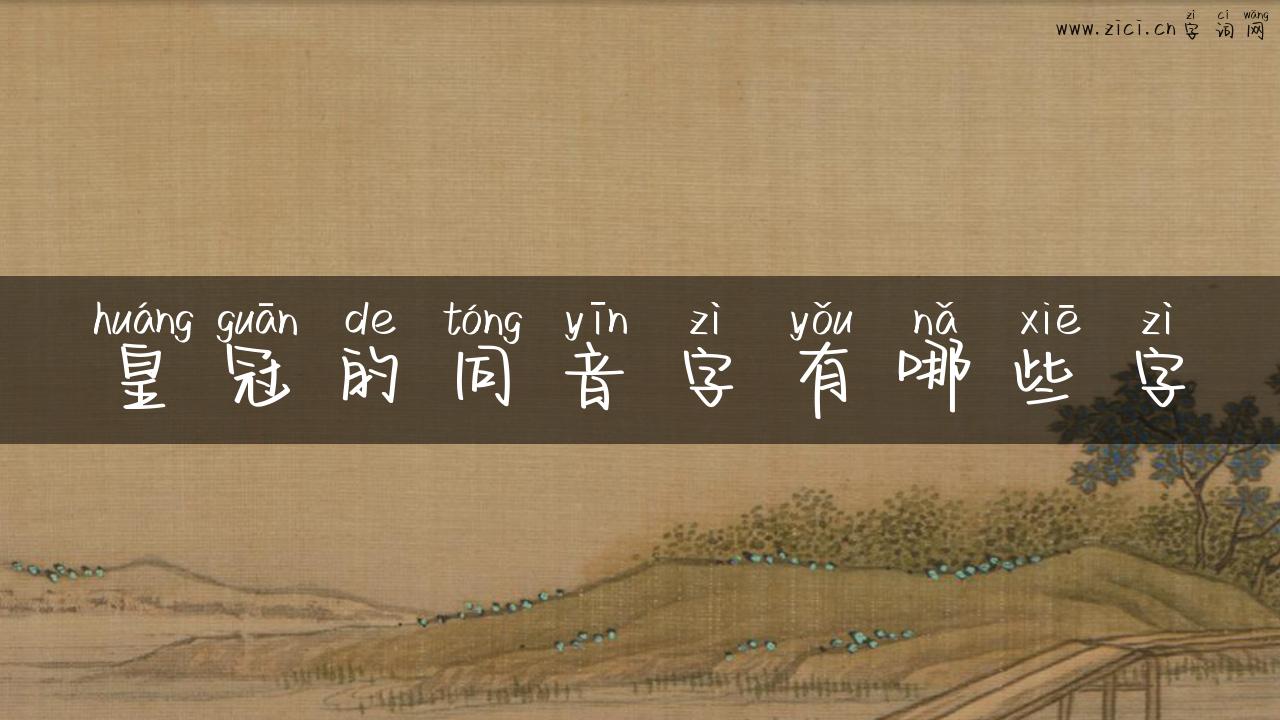 zì cí wǎng
www.zici.cn字词网
huáng guān de tóng yīn zì yǒu nǎ xiē zì
皇冠的同音字有哪些字